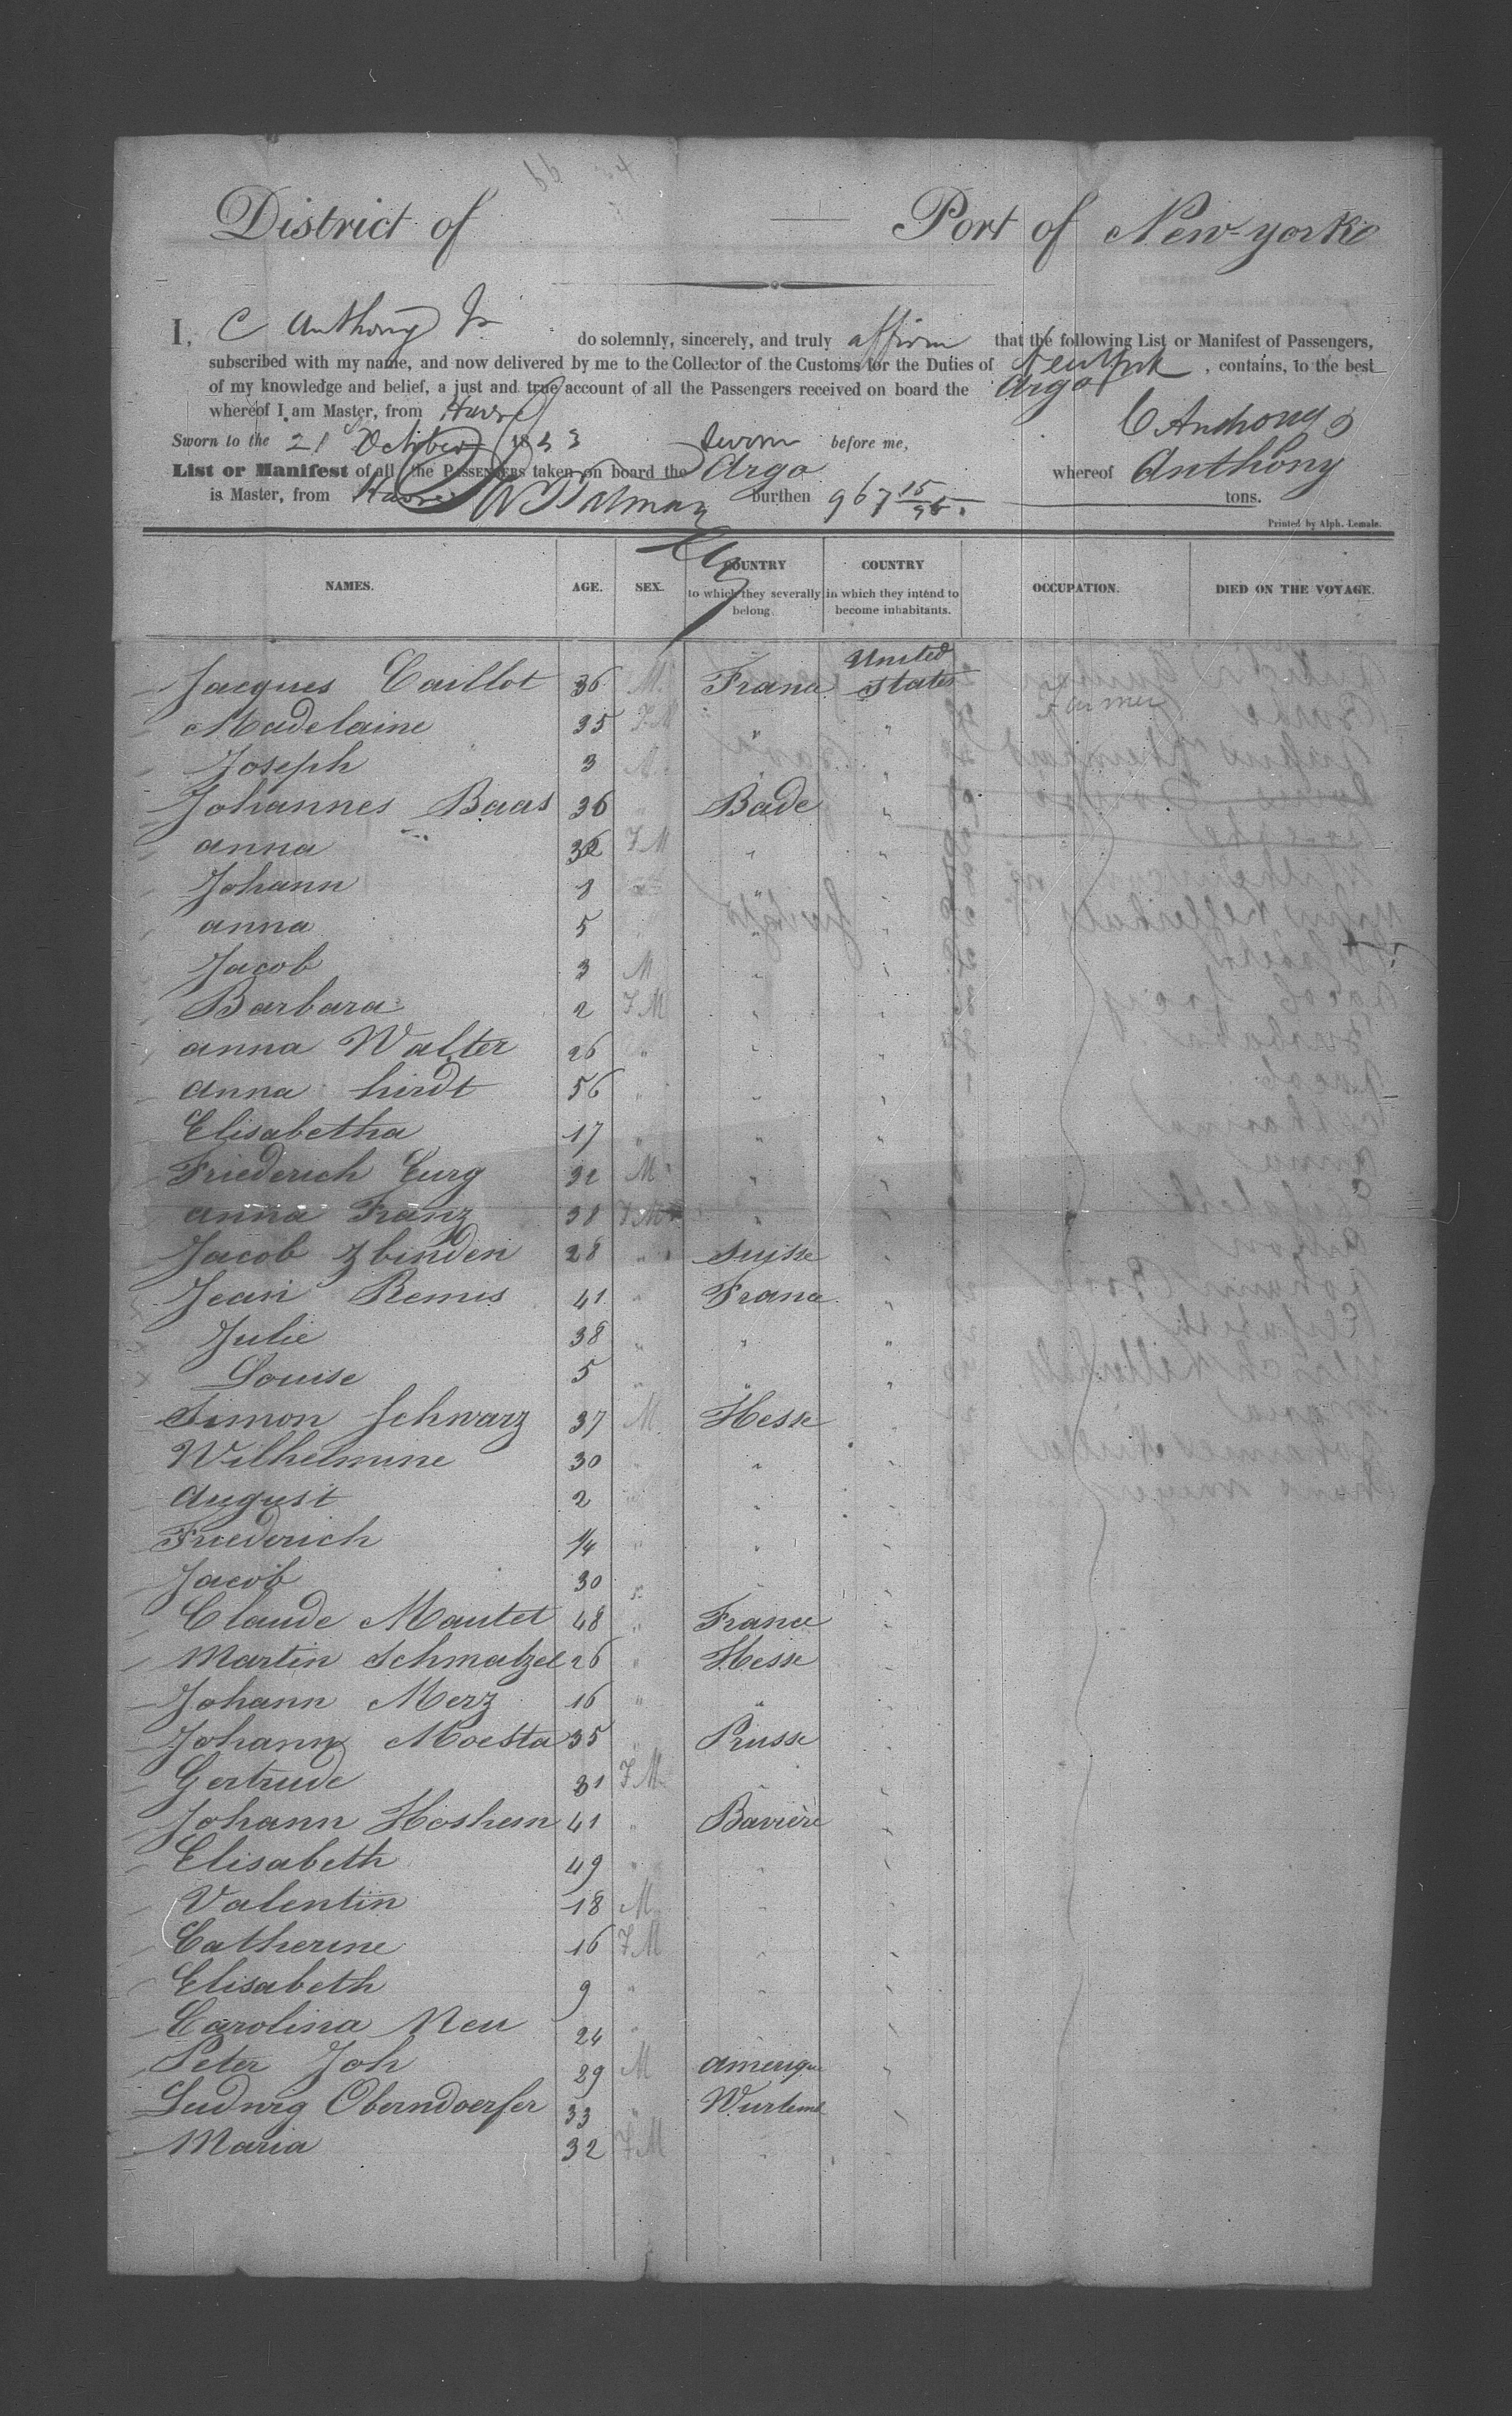 District of — Port of New-york
I, C Anthony Jr do solemnly, sincerely, and truly affirm that the following List or Manifest of Passengers,
subscribed with my name, and now delivered by me to the Collector of the Customs for the Duties of New York, contains, to the best
of my knowledge and belief, a just and true account of all the Passengers received on board the Argo
whereof I am Master, from Havre C Anthony
Sworn to the 21 October 1853 sworn before me,
List or Manifest of all the Passengers taken on board the Argo whereof Anthony
is Master, from Havre burthen 967 15/95 tons.
Printed by Alph. Lemale.
NAMES. AGE. SEX. COUNTRY to which they severally belong. COUNTRY in which they intend to become inhabitants. OCCUPATION. DIED ON THE VOYAGE.
Jacques Caillot 36 M. France United States
Madelaine 35 F M " " farmer
Joseph 3 M. " "
Johannes Baas 36 Bade "
anna 32 F M " "
Johann 8 " "
anna 5 " "
Jacob 3 M " "
Barbara 2 F M " "
anna Walter 26 " " "
anna hirdt 56 " " "
Elisabetha 17 " " "
Friederich Curg 32 M " "
anna Franz 38 F M " "
Jacob Zbinden 28 " Suisse "
Jean Remis 41 " France "
Julie 38 " " "
Louise 5 " " "
Simon Schwarz 37 M Hesse "
Wilhelmine 30 " " "
August 2 " " "
Friederich 1/4 " " "
Jacob 30 " " "
Claude Mautet 48 " France "
Martin Schmalzel 26 " Hesse "
Johann Merz 16 " " "
Johann Moesta 35 " Prusse "
Gertrude 31 F M " "
Johann Hoshem 41 " Baviere "
Elisabeth 49 " " "
Valentin 18 M " "
Catherine 16 F M " "
Elisabeth 9 " " "
Carolina Neu 24 " "
Peter Joh 29 M amerique "
Ludwig Oberndoerfer 33 " Wurtemb "
Maria 32 F M " "